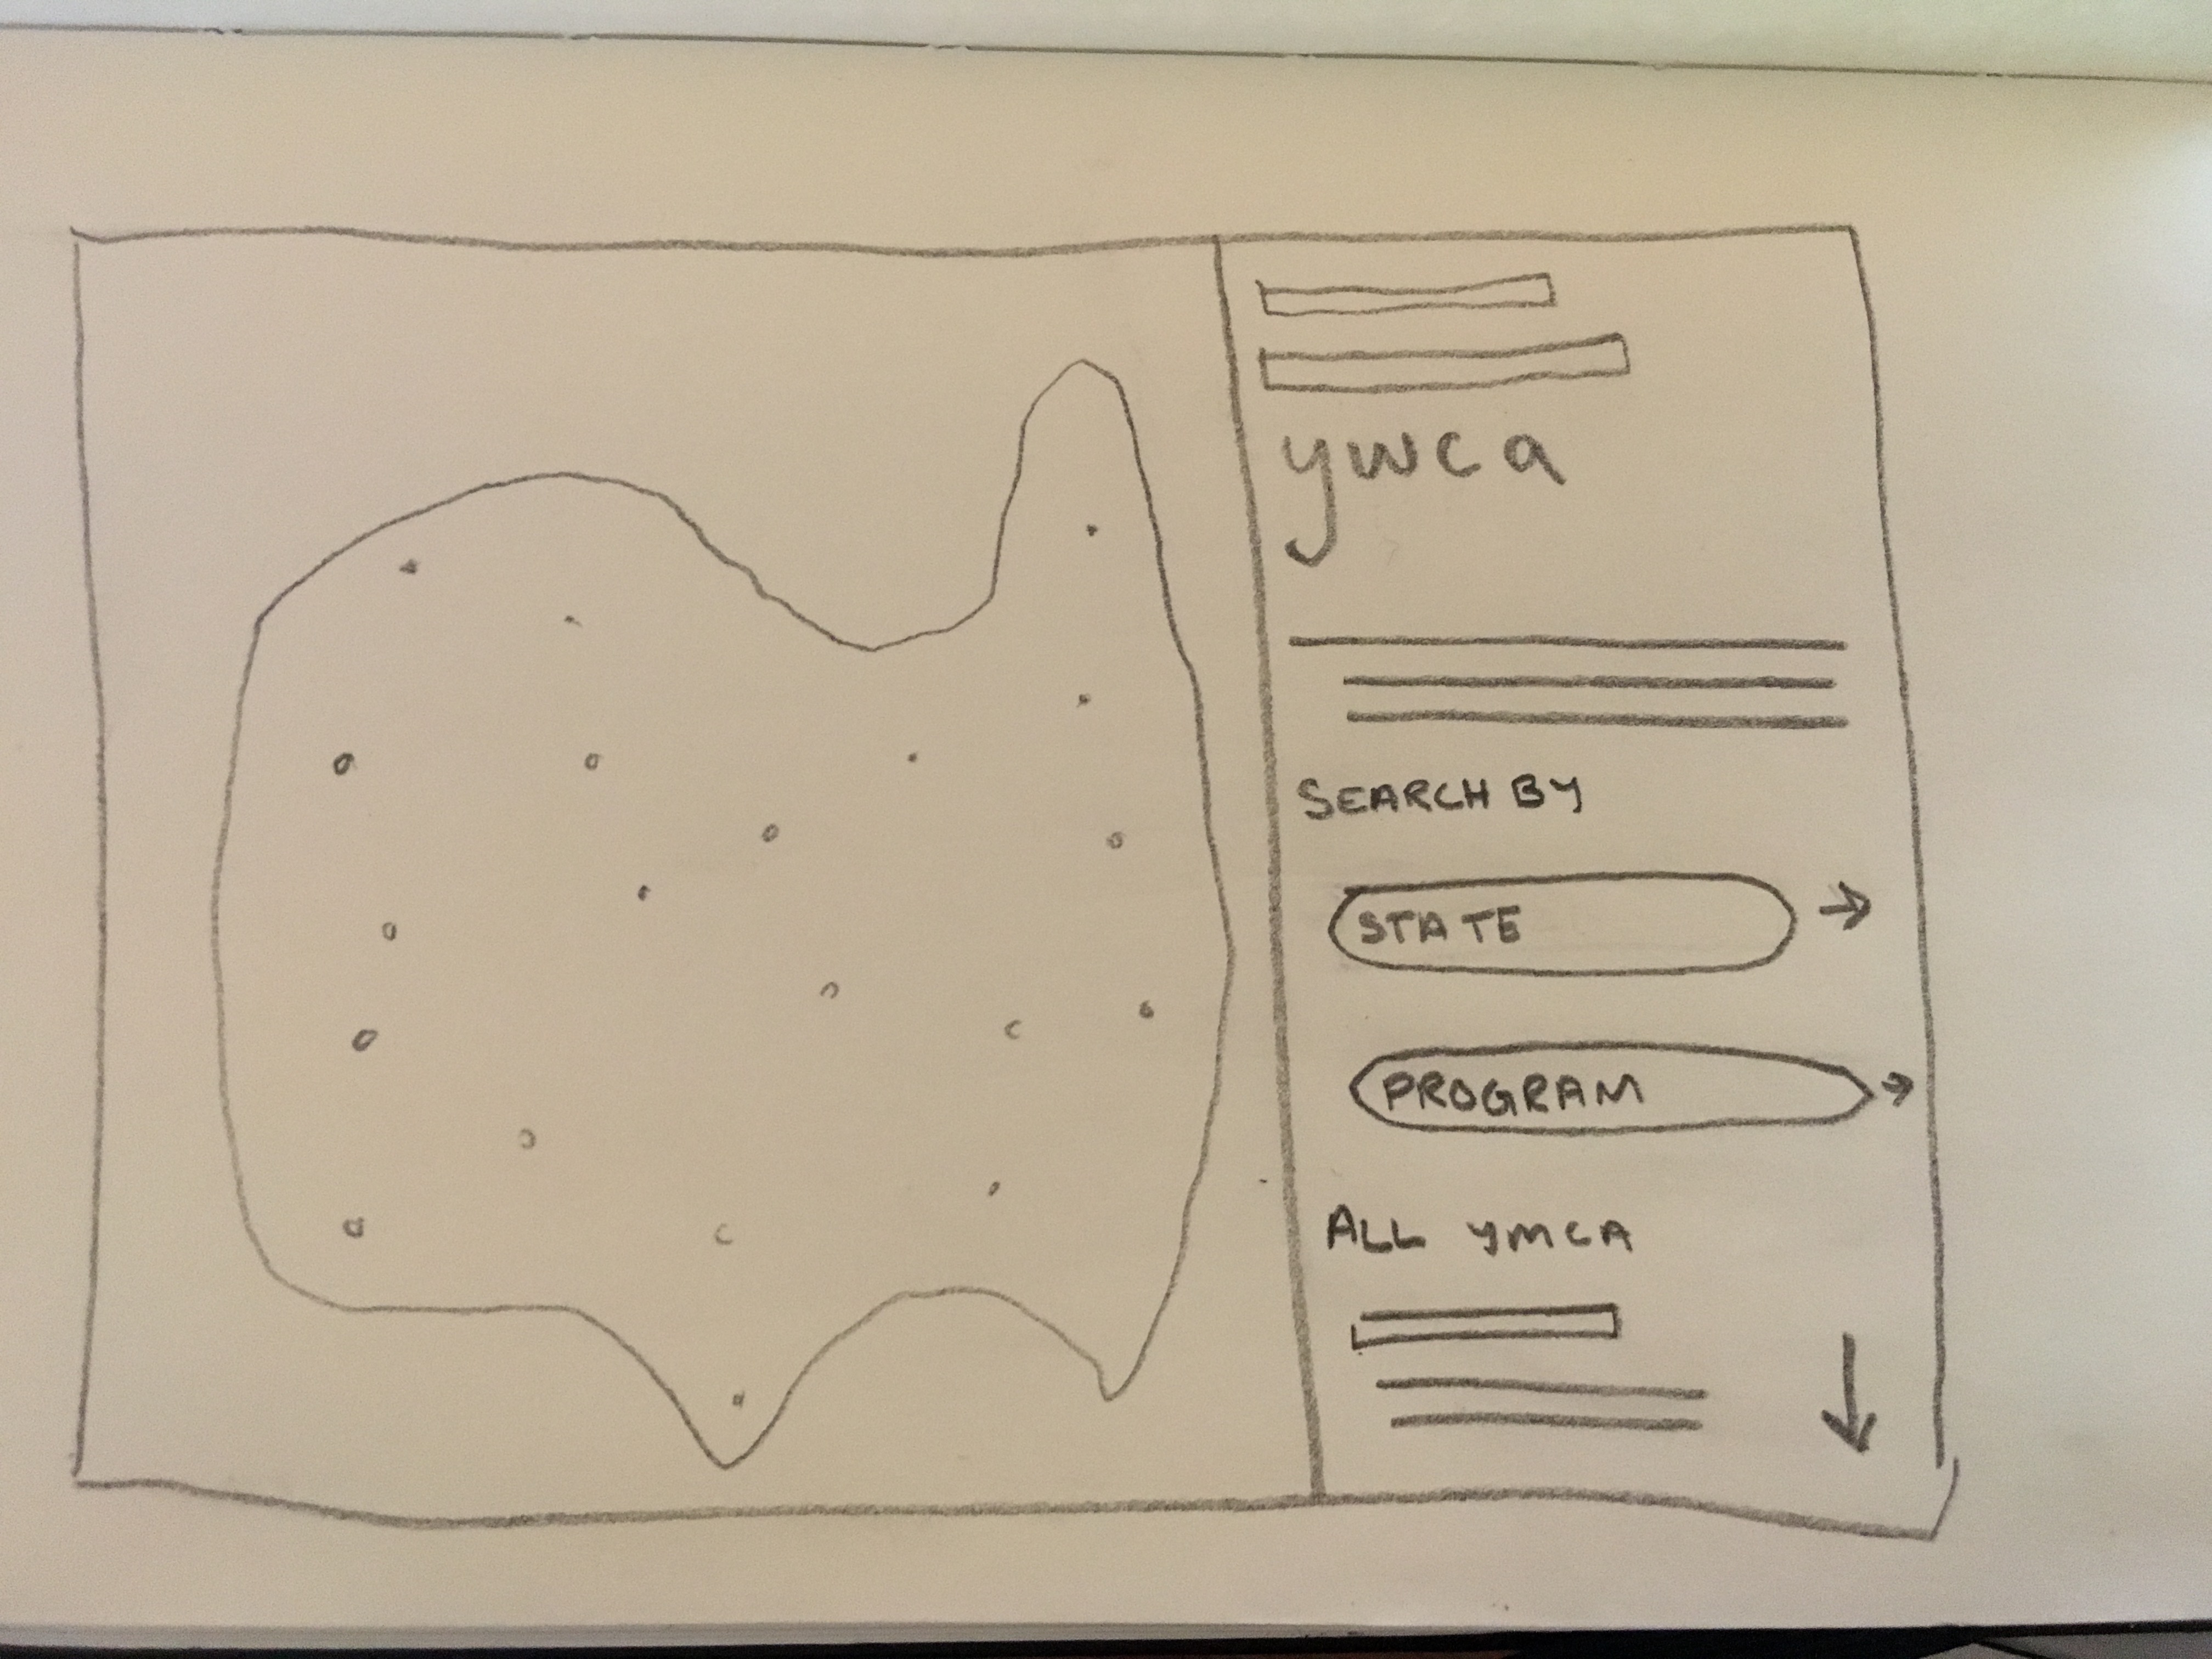 ywca
SEARCH BY
STATE
PROGRAM
ALL YMCA